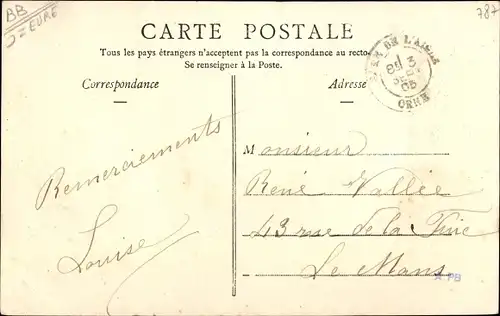 BB
J=EURE
787
CARTE POSTALE
Tous les pays étrangers n'acceptent pas la correspondance au recto
Se renseigner à la Poste.
Correspondance
Adresse
DE L'AIGLE
3
05
ORNE
Remerciements
Louise
Monsieur
René Vallée
43 rue de la
Le Mans
PB